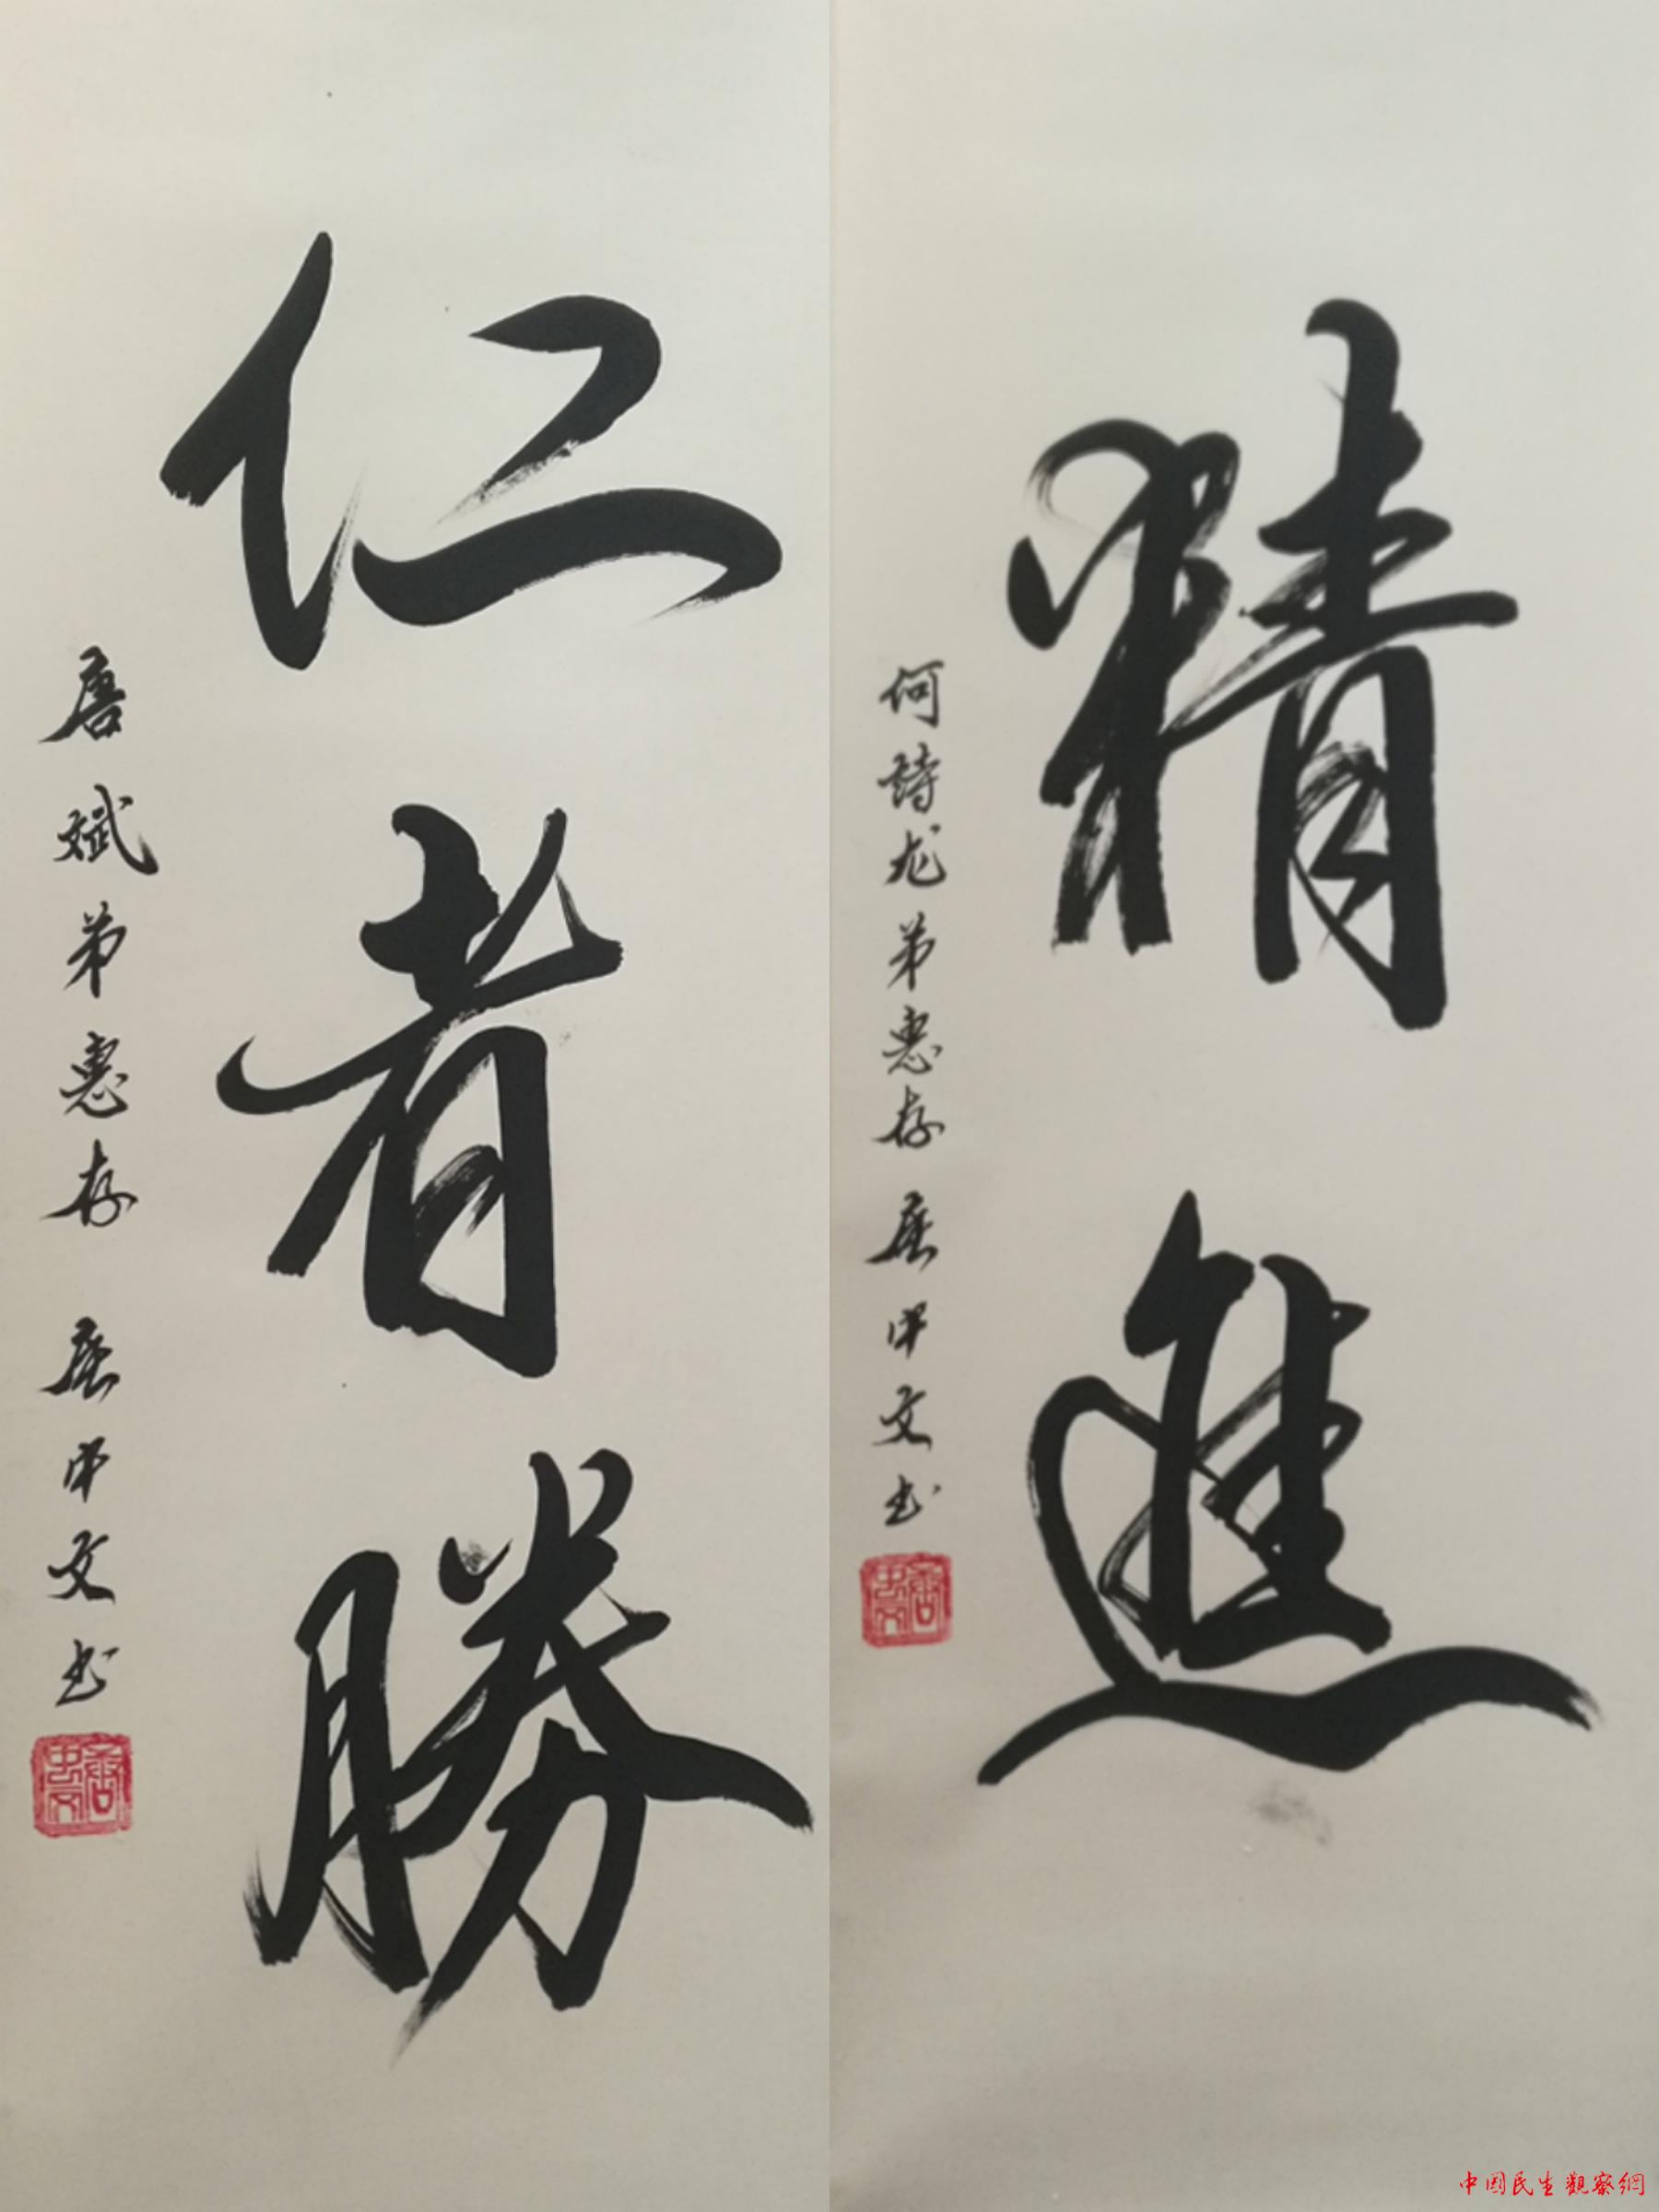 仁者勝
唐斌弟惠存 唐中文书
精進
何詩龙弟惠存 唐中文书
中国民生觀察網